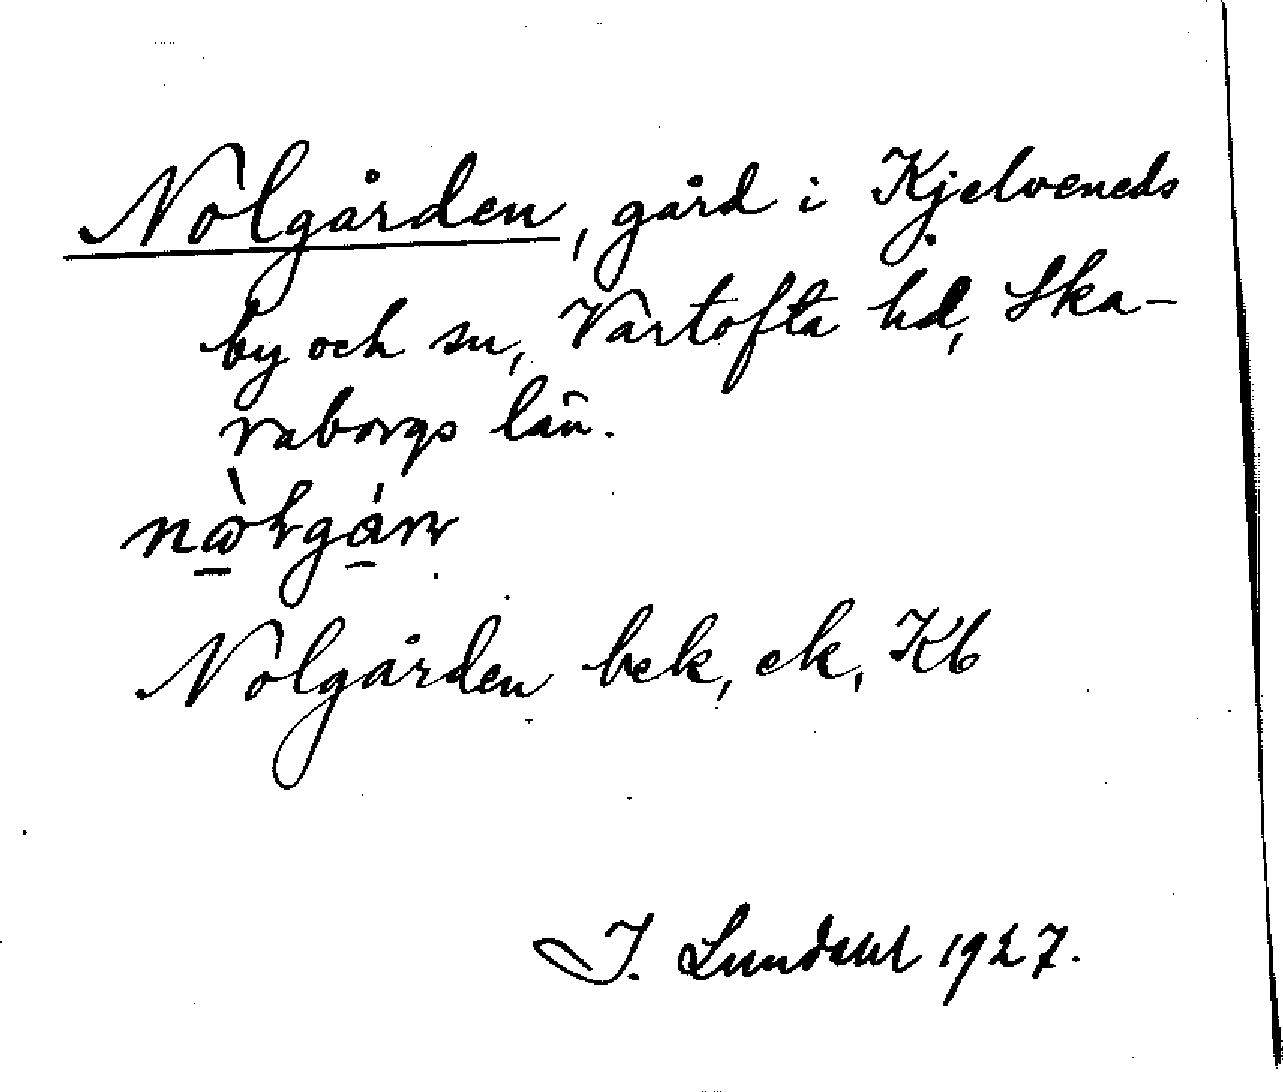 Nolgården, gård i Kjelveneds
by och sn, Vartofta hd, Ska-
raborgs län.
Nolgården bek, ek, Kb
I. Lundahl 1927.